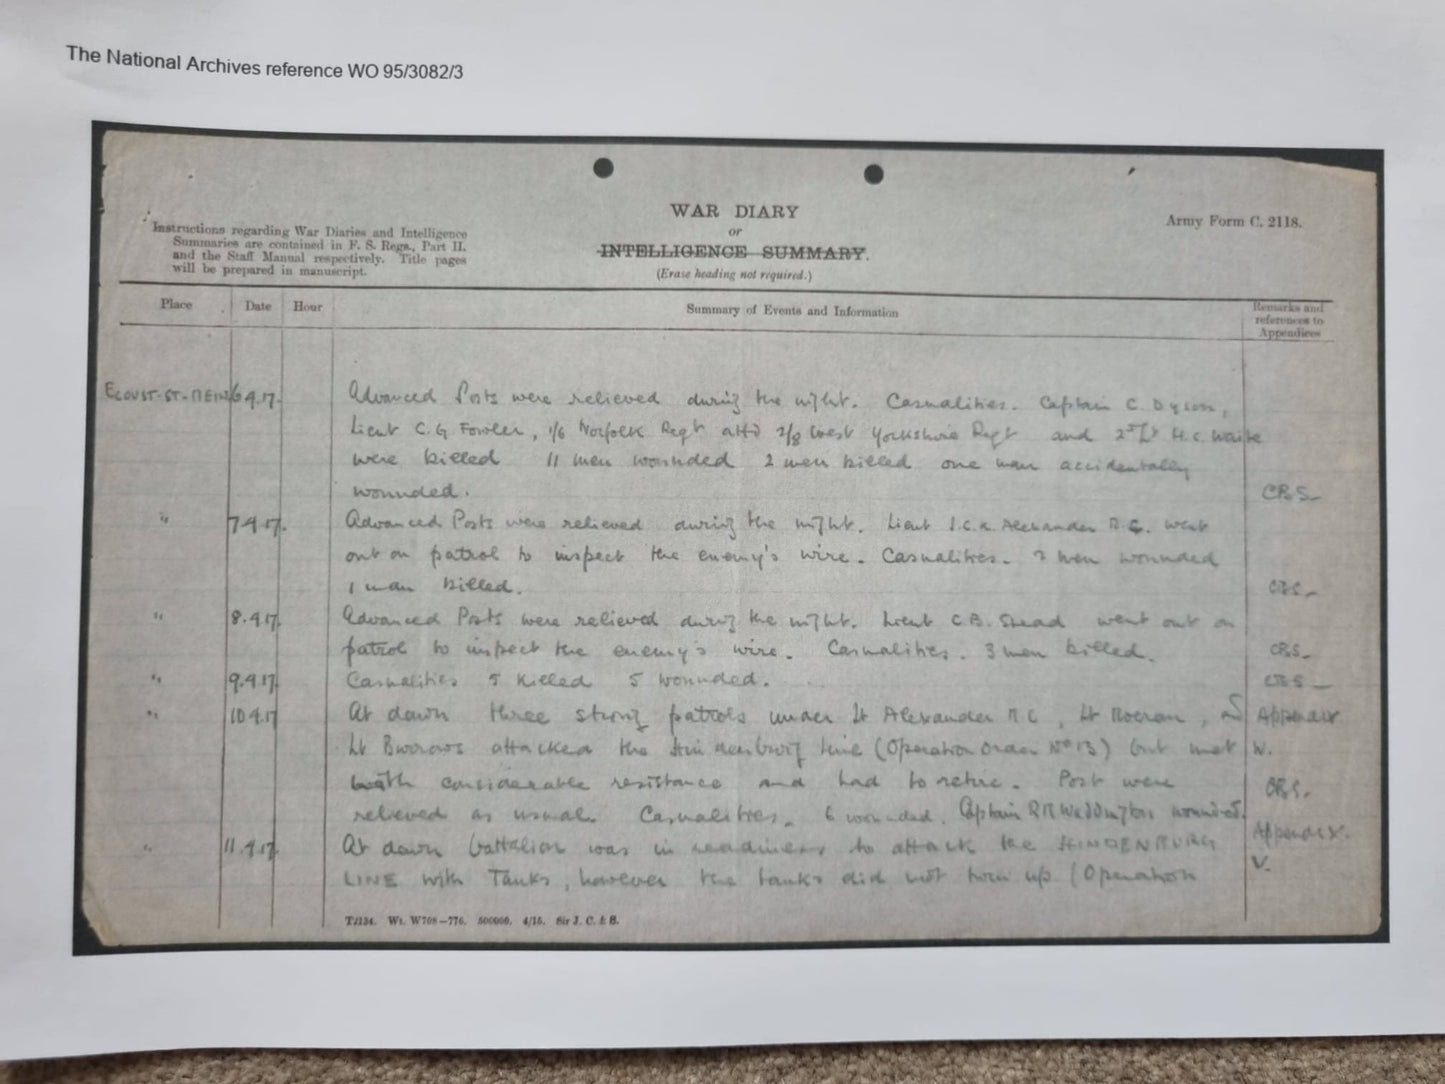 The National Archives reference WO 95/3082/3
WAR DIARY
or
INTELLIGENCE SUMMARY.
(Erase heading not required.)
Army Form C. 2118.
Instructions regarding War Diaries and Intelligence
Summaries are contained in F. S. Regs., Part II.
and the Staff Manual respectively. Title pages
will be prepared in manuscript.
Place Date Hour Summary of Events and Information Remarks and
references to
Appendices
ECOUST-ST-MEIN 6.4.17. Advanced Posts were relieved during the night. Casualities. Captain C. Dyson,
Lieut C.G. Fowler, 1/6 Norfolk Regt attd 2/8 West Yorkshire Regt and 2nd Lt H.C. Waite
were killed 11 men wounded 2 men killed one man accidentally
wounded.
" 7.4.17. Advanced Posts were relieved during the night. Lieut Alexander went
out on patrol to inspect the enemy's wire. Casualities. men wounded
1 man killed.
" 8.4.17. Advanced Posts were relieved during the night. Lieut C.B. Stead went out on
patrol to inspect the enemy's wire. Casualities. 3 men killed.
" 9.4.17. Casualities 5 killed 5 wounded.
" 10.4.17 At dawn three strong patrols under Lt Alexander M C, Lt and Appendix
Lt Burrows attacked the Hindenburg Line (Operation Order No 13) but met W.
with considerable resistance and had to retire. Post were
relieved as usual. Casualities. 6 wounded. Captain Waddington wounded.
Appendix.
" 11.4.17. At dawn battalion was in readiness to attack the HINDENBURG
V.
LINE with Tanks, however the tanks did not turn up. (Operation
T2134. Wt. W708—776. 500000. 4/15. Sir J. C. & S.